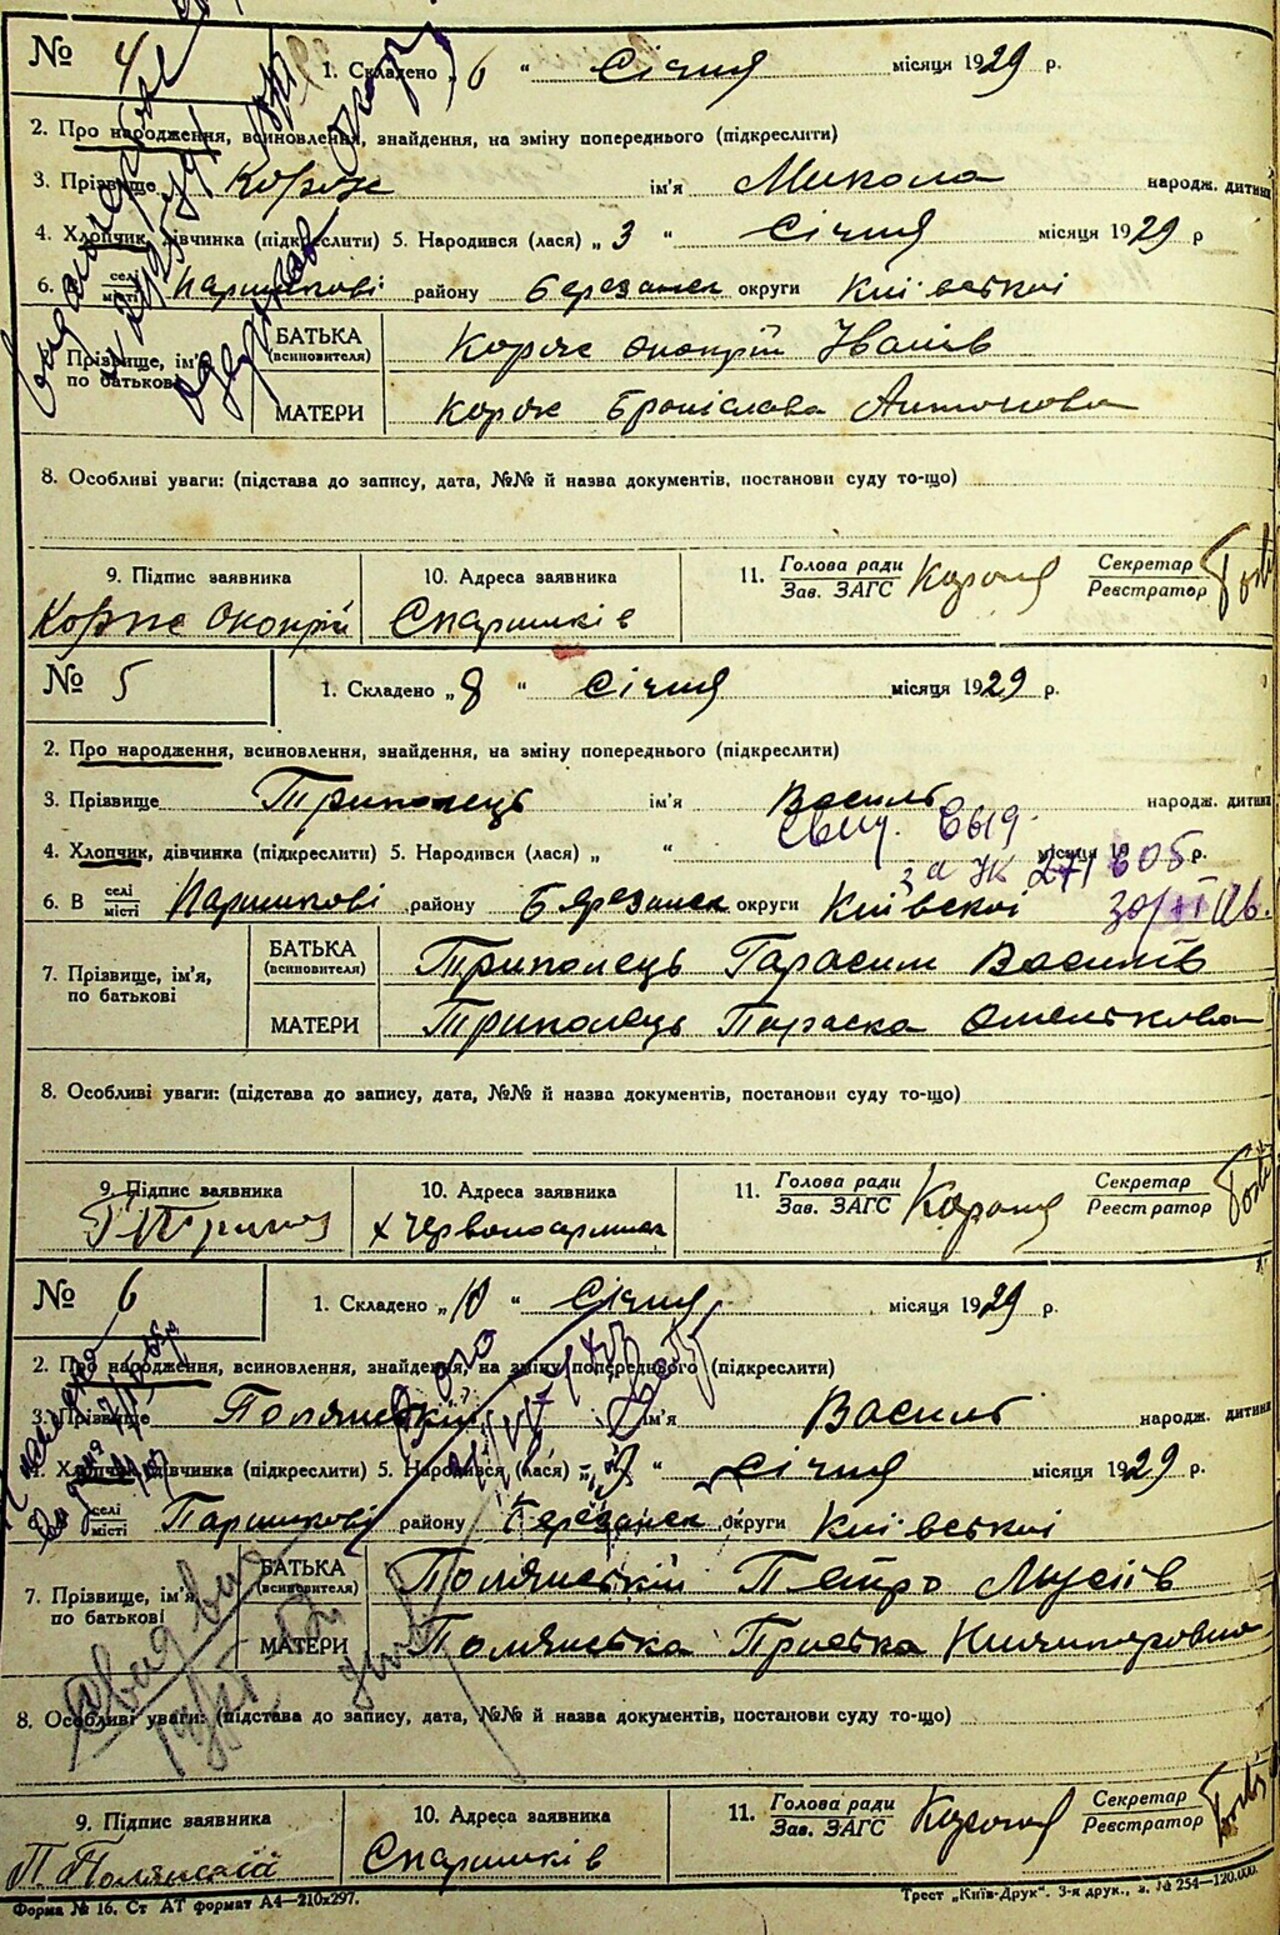 № 4
1. Складено „ 6 “ Січня місяця 1929 р.
2. Про народження, всиновлення, знайдення, на зміну попереднього (підкреслити)
3. Прізвище Корж ім'я Микола народж. дитини
4. Хлопчик, дівчинка (підкреслити) 5. Народився (лася) „ 3 “ Січня місяця 1929 р
6. В селі місті Паришкові району Березанск округи Київської
7. Прізвище, ім'я, по батькові
БАТЬКА (всиновителя) Корж Іванів
МАТЕРИ Корж Броніслава Антонова
8. Особливі уваги: (підстава до запису, дата, №№ й назва документів, постанови суду то-що)
9. Підпис заявника
Корж
10. Адреса заявника
С Паришків
11. Голова ради
Зав. ЗАГС
Секретар
Реєстратор
№ 5
1. Складено „ 8 “ Січня місяця 1929 р.
2. Про народження, всиновлення, знайдення, на зміну попереднього (підкреслити)
3. Прізвище Триполець ім'я Василь народж. дитини
свид. выд.
4. Хлопчик, дівчинка (підкреслити) 5. Народився (лася) „ “ місяця 19 р.
за №
6. В селі місті Паришкові району Березанск округи Київскої
7. Прізвище, ім'я, по батькові
БАТЬКА (всиновителя) Триполець Гарасим Василів
МАТЕРИ Триполець Параска Омелькова
8. Особливі уваги: (підстава до запису, дата, №№ й назва документів, постанови суду то-що)
9. Підпис заявника
10. Адреса заявника
х Червоноармиек
11. Голова ради
Зав. ЗАГС
Секретар
Реєстратор
№ 6
1. Складено „ 10 “ Січня місяця 1929 р.
2. Про народження, всиновлення, знайдення, на зміну попереднього (підкреслити)
3. Прізвище Полянській ім'я Василь народж. дитини
4. Хлопчик, дівчинка (підкреслити) 5. Народився (лася) „ “ Січня місяця 1929 р.
6. В селі місті Паришкові району Березанск округи Київської
7. Прізвище, ім'я по батькові
БАТЬКА (всиновителя) Полянській Петро Мусіїв
МАТЕРИ Полянська Пріська Ничипоровна
8. Особливі уваги: (підстава до запису, дата, №№ й назва документів, постанови суду то-що)
9. Підпис заявника
П. Полянскій
10. Адреса заявника
С Паришків
11. Голова ради
Зав. ЗАГС
Секретар
Реєстратор
Форма № 16. Ст АТ формат А4—210х297.
Трест „Київ-Друк“. 3-я друк., з. № 254—120.000.